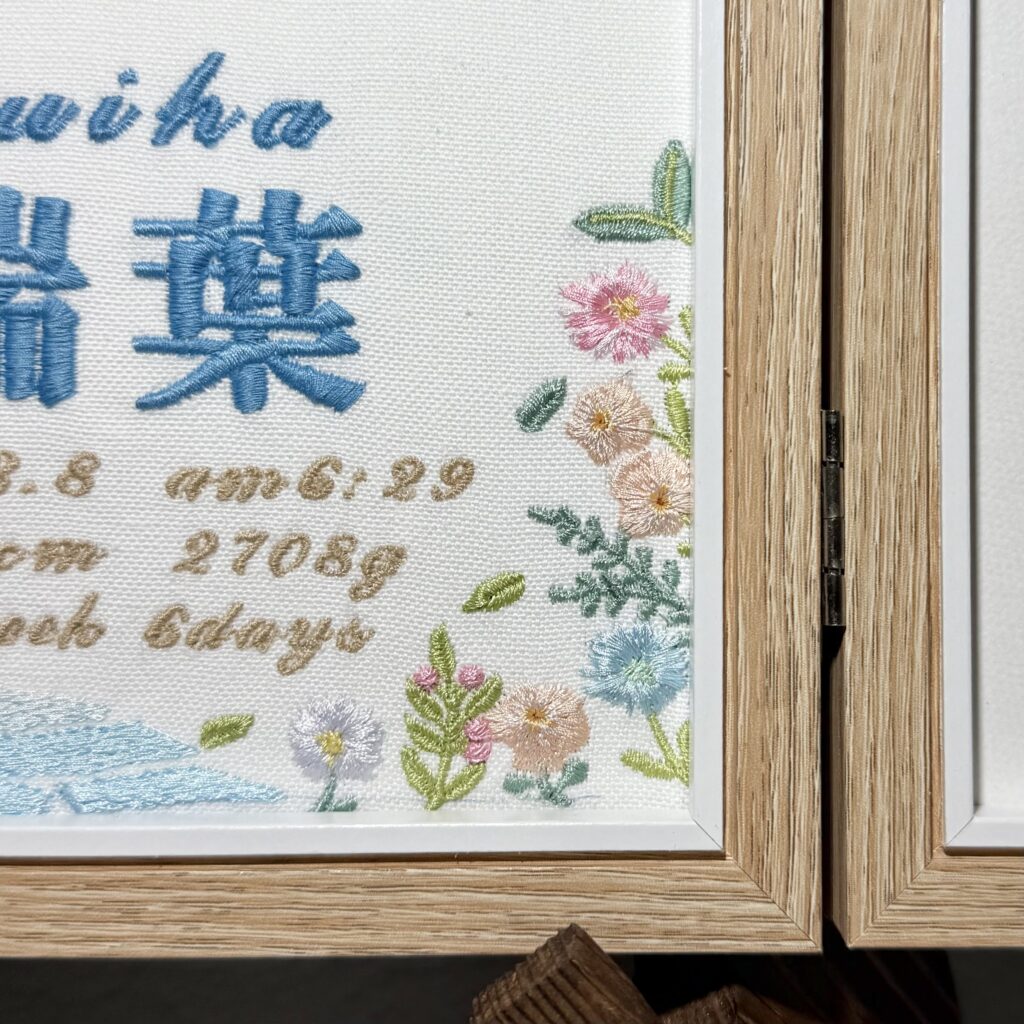 iha
葉
.8 am6:29
cm 2708g
6days